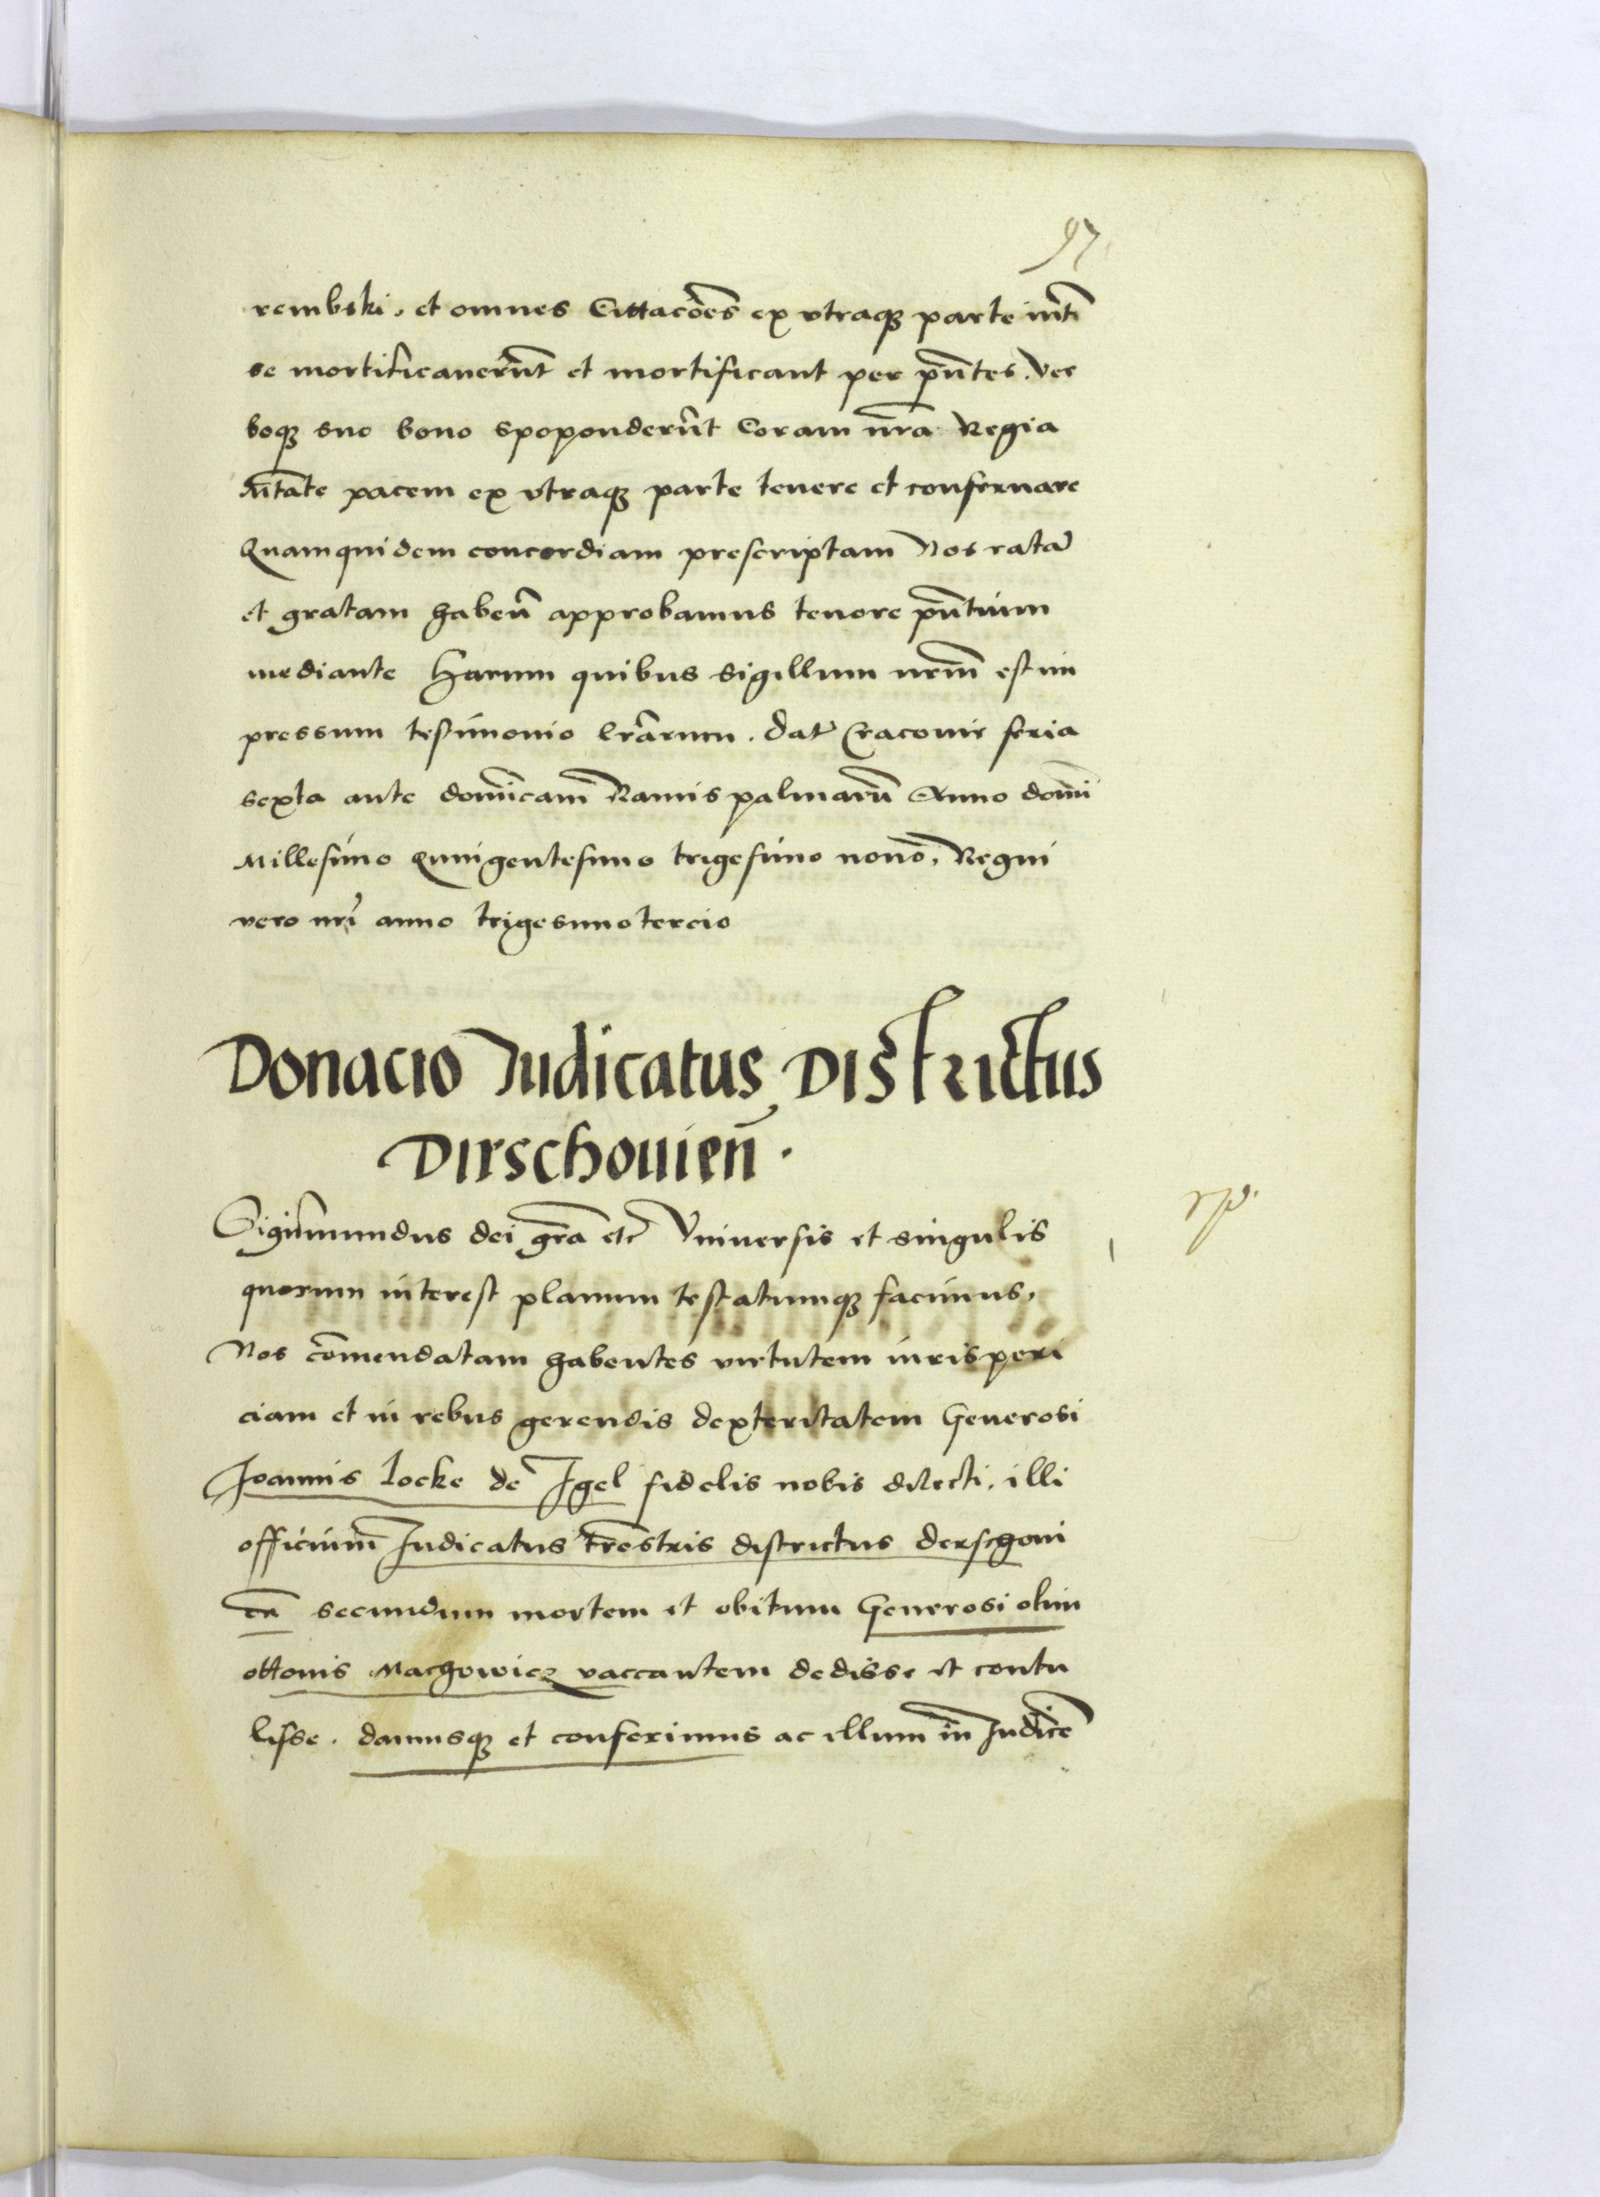 97
rembski, et omnes Cittacões ex vtraq parte int̃
se mortificauerũt et mortificant per pñtes. Ver
boq suo bono spoponderũt Coram nr̃a Regia
Mtãte pacem ex vtraq parte tenere et conseruare
Quamquidem concordiam prescriptam Nos ratã
et gratam habeñ approbamus tenore pñtium
mediante Harum quibus sigillum nrm̃ est im
pressum testimonio lrãrum. Dat Cracouie feria
sexta ante domĩcam Ramispalmarũ Anno domĩ
Millesimo Quingentesimo trigesimo nono, Regni
vero nrĩ anno trigesimotercio
Donacio Iudicatus Districtus
Dirschouieñ.
Sigismundus dei grã etc Vniuersis et singulis
quorum interest planum testatumq facimus,
Nos cõmendatam habentes virtutem iurisperi
ciam et in rebus gerendis dexteritatem Generosi
Joannis locke de Igel fidelis nobis dilecti, illi
officium Iudicatus trẽstris districtus dersghoui
eñ secundum mortem et obitum Generosi olim
ottonis Machowicz vaccantem dedisse et contu
lisse. damusq et conferimus ac illum in Iudicẽ